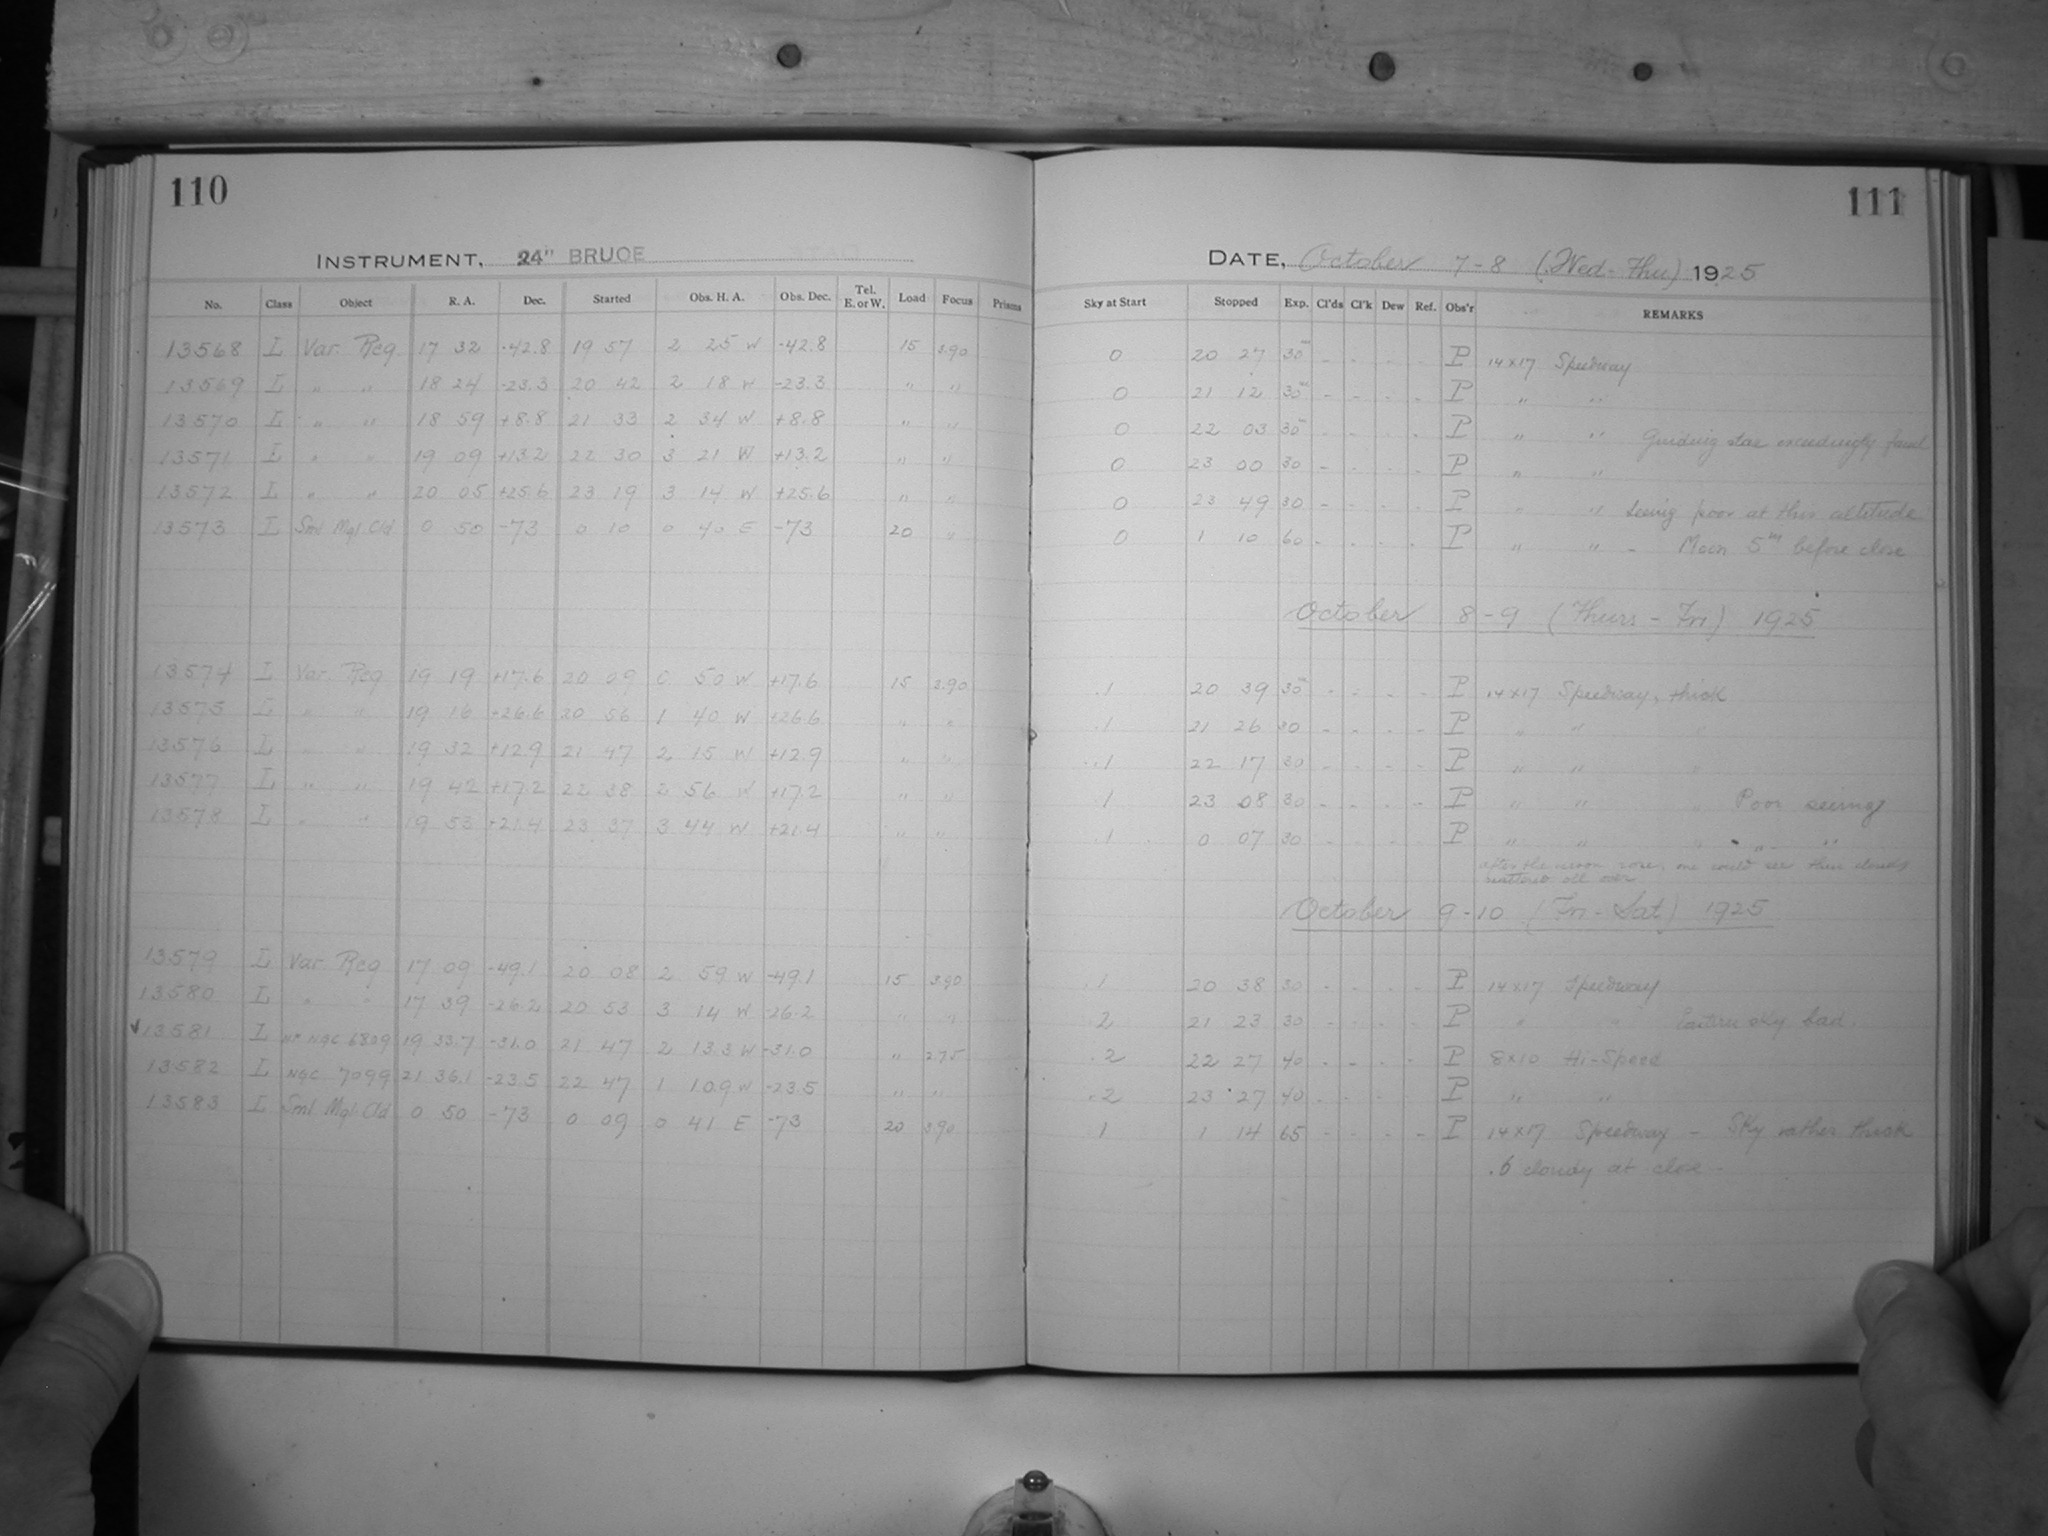 110
111
INSTRUMENT, 24" BRUCE
DATE, October 7-8 (Wed-Thu) 1925
No. Class Object R. A. Dec. Started Obs. H. A. Obs. Dec. Tel. E. or W. Load Focus Prisms Sky at Start Stopped Exp. Cl'ds Cl'k Dew Ref. Obs'r REMARKS
13568 L Var. Reg 17 32 -42.8 19 57 2 25 W -42.8 15 3.90 0 20 27 30m - - - - P 14x17 Speedway
13569 L " " 18 24 -23.3 20 42 2 18 W -23.3 " " 0 21 12 30m - - - - P " "
13570 L " " 18 59 +8.8 21 33 2 34 W +8.8 " " 0 22 03 30m - - - - P " " Guiding star exceedingly faint
13571 L " " 19 09 +13.2 22 30 3 21 W +13.2 " " 0 23 00 30 - - - - P " "
13572 L " " 20 05 +25.6 23 19 3 14 W +25.6 " " 0 23 49 30 - - - - P " " Seeing poor at this altitude
13573 L Sml Mgl Cld 0 50 -73 0 10 0 40 E -73 20 " 0 1 10 60 - - - - P " " - Moon 5m before close
October 8-9 (Thurs-Fri) 1925
13574 L Var. Reg 19 19 +17.6 20 09 0 50 W +17.6 15 3.90 .1 20 39 30m - - - - P 14x17 Speedway, thick
13575 L " " 19 16 +26.6 20 56 1 40 W +26.6 " " .1 21 26 30 - - - - P " " "
13576 L " " 19 32 +12.9 21 47 2 15 W +12.9 " " .1 22 17 30 - - - - P " " "
13577 L " " 19 42 +17.2 22 38 2 56 W +17.2 " " .1 23 08 30 - - - - P " " " Poor seeing
13578 L " " 19 53 +21.4 23 37 3 44 W +21.4 " " .1 0 07 30 - - - - P " " " " "
after the moon rose, one could see thin clouds
scattered all over.
October 9-10 (Fri-Sat) 1925
13579 L Var. Reg 17 09 -49.1 20 08 2 59 W -49.1 15 3.90 .1 20 38 30 - - - - P 14x17 Speedway
13580 L " " 17 39 -26.2 20 53 3 14 W -26.2 " " .2 21 23 30 - - - - P " " Eastern sky bad.
✓13581 L nr NGC 6809 19 33.7 -31.0 21 47 2 13.3 W -31.0 " 2.75 .2 22 27 40 - - - - P 8x10 Hi-Speed
13582 L NGC 7099 21 36.1 -23.5 22 47 1 10.9 W -23.5 " " .2 23 27 40 - - - - P " "
13583 L Sml Mgl Cld 0 50 -73 0 09 0 41 E -73 20 3.90 .1 1 14 65 - - - - P 14x17 Speedway - Sky rather thick
.6 cloudy at close.